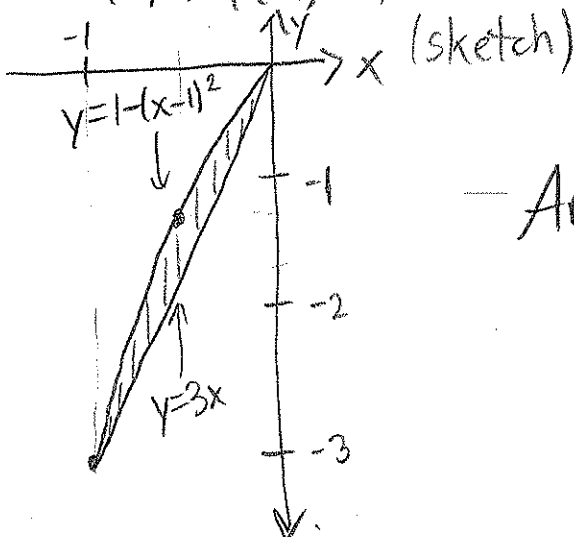 -1
y
x (sketch)
y=1-(x-1)²
-1
-2
y=3x
-3